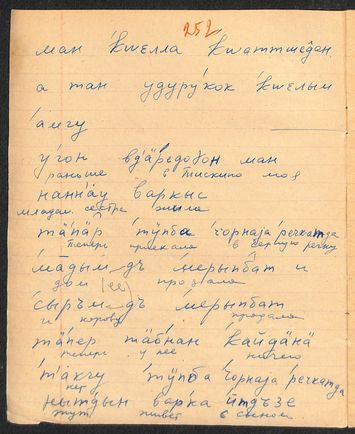 252
ман кшелла кшаттшедан.
а тан удуру́кок к̓шелым
а́мгу
у́гон вдӓредоӷон ман
раньше в Тискино моя
наннӓу варкыс
младш. сестра жила
тӓпӓр тӱмба чорнаја речкатда
теперь приехала в Черную речку
ма̄дым дъ ме́рыпбат и
дом (ее) продала
сы́ръм дъ мерыпбат
и корову продала
тӓпер тӓбнан кайдӓнӓ
теперь у нее ничего
тӓкгу тӱмба чорнаја речкатда
нет
нытдын варка ӣтдъзе
тут живет с сыном